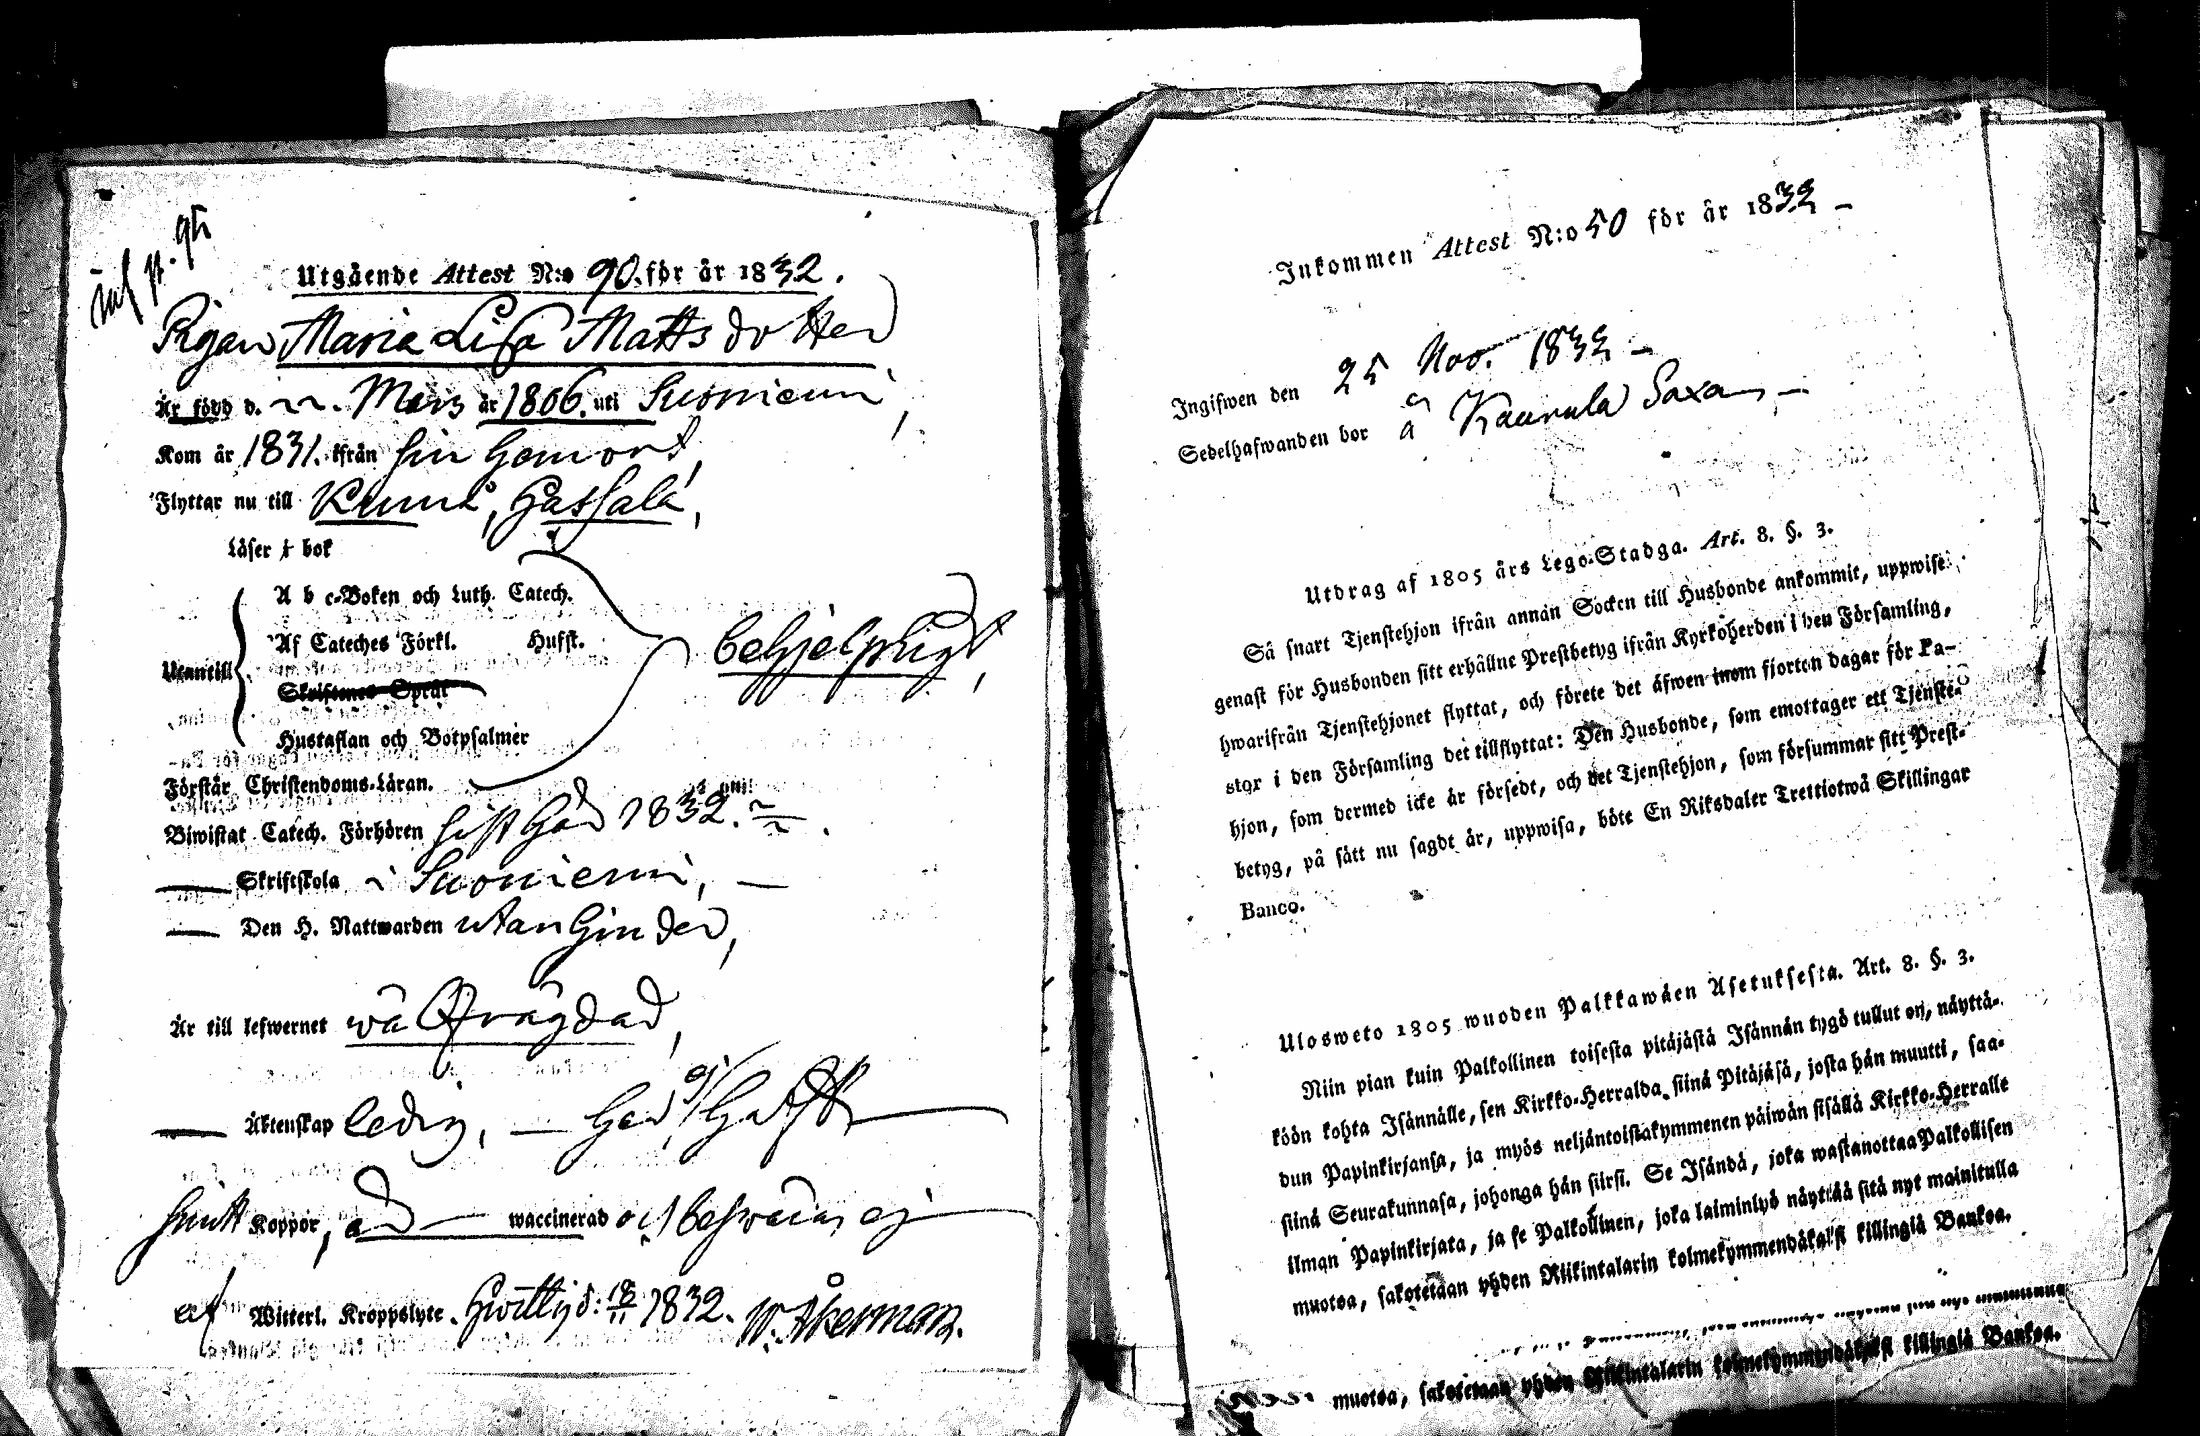 inf p. 95
Utgående Attest N:o 90. för år 1832.
Pigan Maria Lisa Matts dotter
Är född d. Mars år 1806. uti Suoniemi,
Kom år 1831. ifrån sin hemort,
Flyttar nu till Kumo, Hassala,
Läser i bok
A b c-Boken och Luth. Catech.
Af Cateches Förkl. Hufst.
Utantill
behjelpligt,
Skriftenes Språk
Hustaflan och Botpsalmer
Förstår Christendoms-Läran.
Biwistat Catech. Förhören sist håd 1832.
— Skriftskola i Suoniemi, —
— Den H. Nattwarden utan hinder,
Är till lefwernet wä frägdad,
— Äktenskap ledig, — har ej haft
smitt Koppor, är — waccinerad och beswäras ej
af Witterl. Kroppslyte. Hwittis d: 18/11 1832. W. Åkerman.
Inkommen Attest N:o 50 för år 1832 —
Ingifwen den 25 Nov. 1832 —
Sedelhafwanden bor å Kaurula Saxa —
Utdrag af 1805 års Lego-Stadga. Art. 8. §. 3.
Så snart Tjenstehjon ifrån annan Socken till Husbonde ankommit, uppwise
genast för Husbonden sitt erhållne Prestbetyg ifrån Kyrkoherden i den Församling,
hwarifrån Tjenstehjonet flyttat, och förete det äfwen inom fjorton dagar för Pa-
stor i den Församling det tillflyttat: Den Husbonde, som emottager ett Tjenste-
hjon, som dermed icke är försedt, och det Tjenstehjon, som försummar sitt Prest-
betyg, på sätt nu sagdt är, uppwisa, böte En Riksdaler Trettiotwå Skillingar
Banco.
Ulosweto 1805 wuoden Palkkawäen Asetuksesta. Art. 8. §. 3.
Niin pian kuin Palkollinen toisesta pitäjästä Isännän tygö tullut on, näyttä-
köön kohta Isännälle, sen Kirkko-Herralda siinä Pitäjäsä, josta hän muutti, saa-
dun Papinkirjansa, ja myös neljäntoistakymmenen päiwän sisällä Kirkko-Herralle
siinä Seurakunnasa, johonga hän siirsi. Se Isändä, joka wastanottaa Palkollisen
ilman Papinkirjata, ja se Palkollinen, joka laiminlyö näyttää sitä nyt mainitulla
muotoa, sakotetaan yhden Riikintalarin kolmekymmendäkaksi killingiä Bankoa.
muotoa, sakotetaan yhden Riikintalarin kolmekymmendäkaksi killingiä Bankoa.